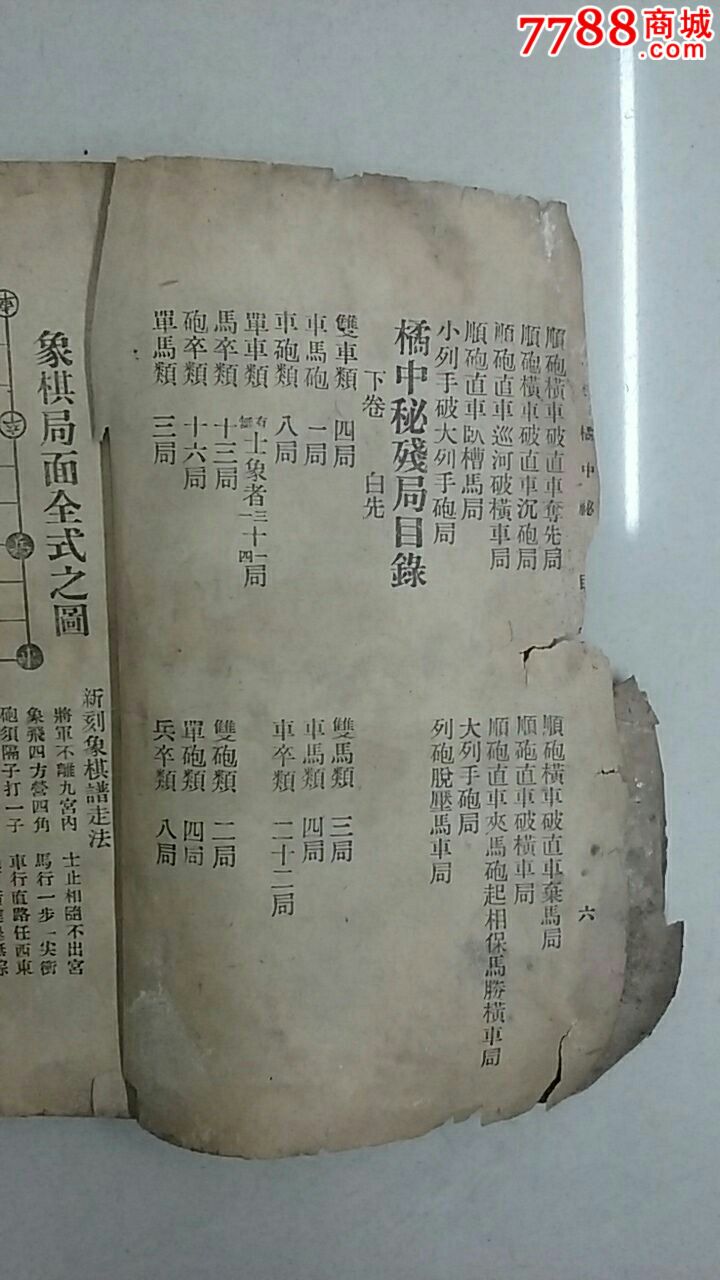 7788商城
.com
橘中秘
六
順砲橫車破直車奪先局
順砲橫車破直車棄馬局
順砲橫車破直車沉砲局
順砲直車破橫車局
順砲直車巡河破橫車局
順砲直車夾馬砲起相保馬勝橫車局
順砲直車臥槽馬局
大列手砲局
小列手破大列手砲局
列砲脫壓馬車局
橘中秘殘局目錄
下卷 白先
雙車類 四局
雙馬類 三局
車馬砲 一局
車馬類 四局
車砲類 八局
車卒類 二十二局
單車類 有無士象者 三十一 一四 局
馬卒類 十三局
雙砲類 二局
砲卒類 十六局
單砲類 四局
單馬類 三局
兵卒類 八局
象棋局面全式之圖
新刻象棋譜走法
將軍不離九宮內 士止相隨不出宮
象飛四方營四角 馬行一步一尖衝
砲須隔子打一子 車行直路任西東